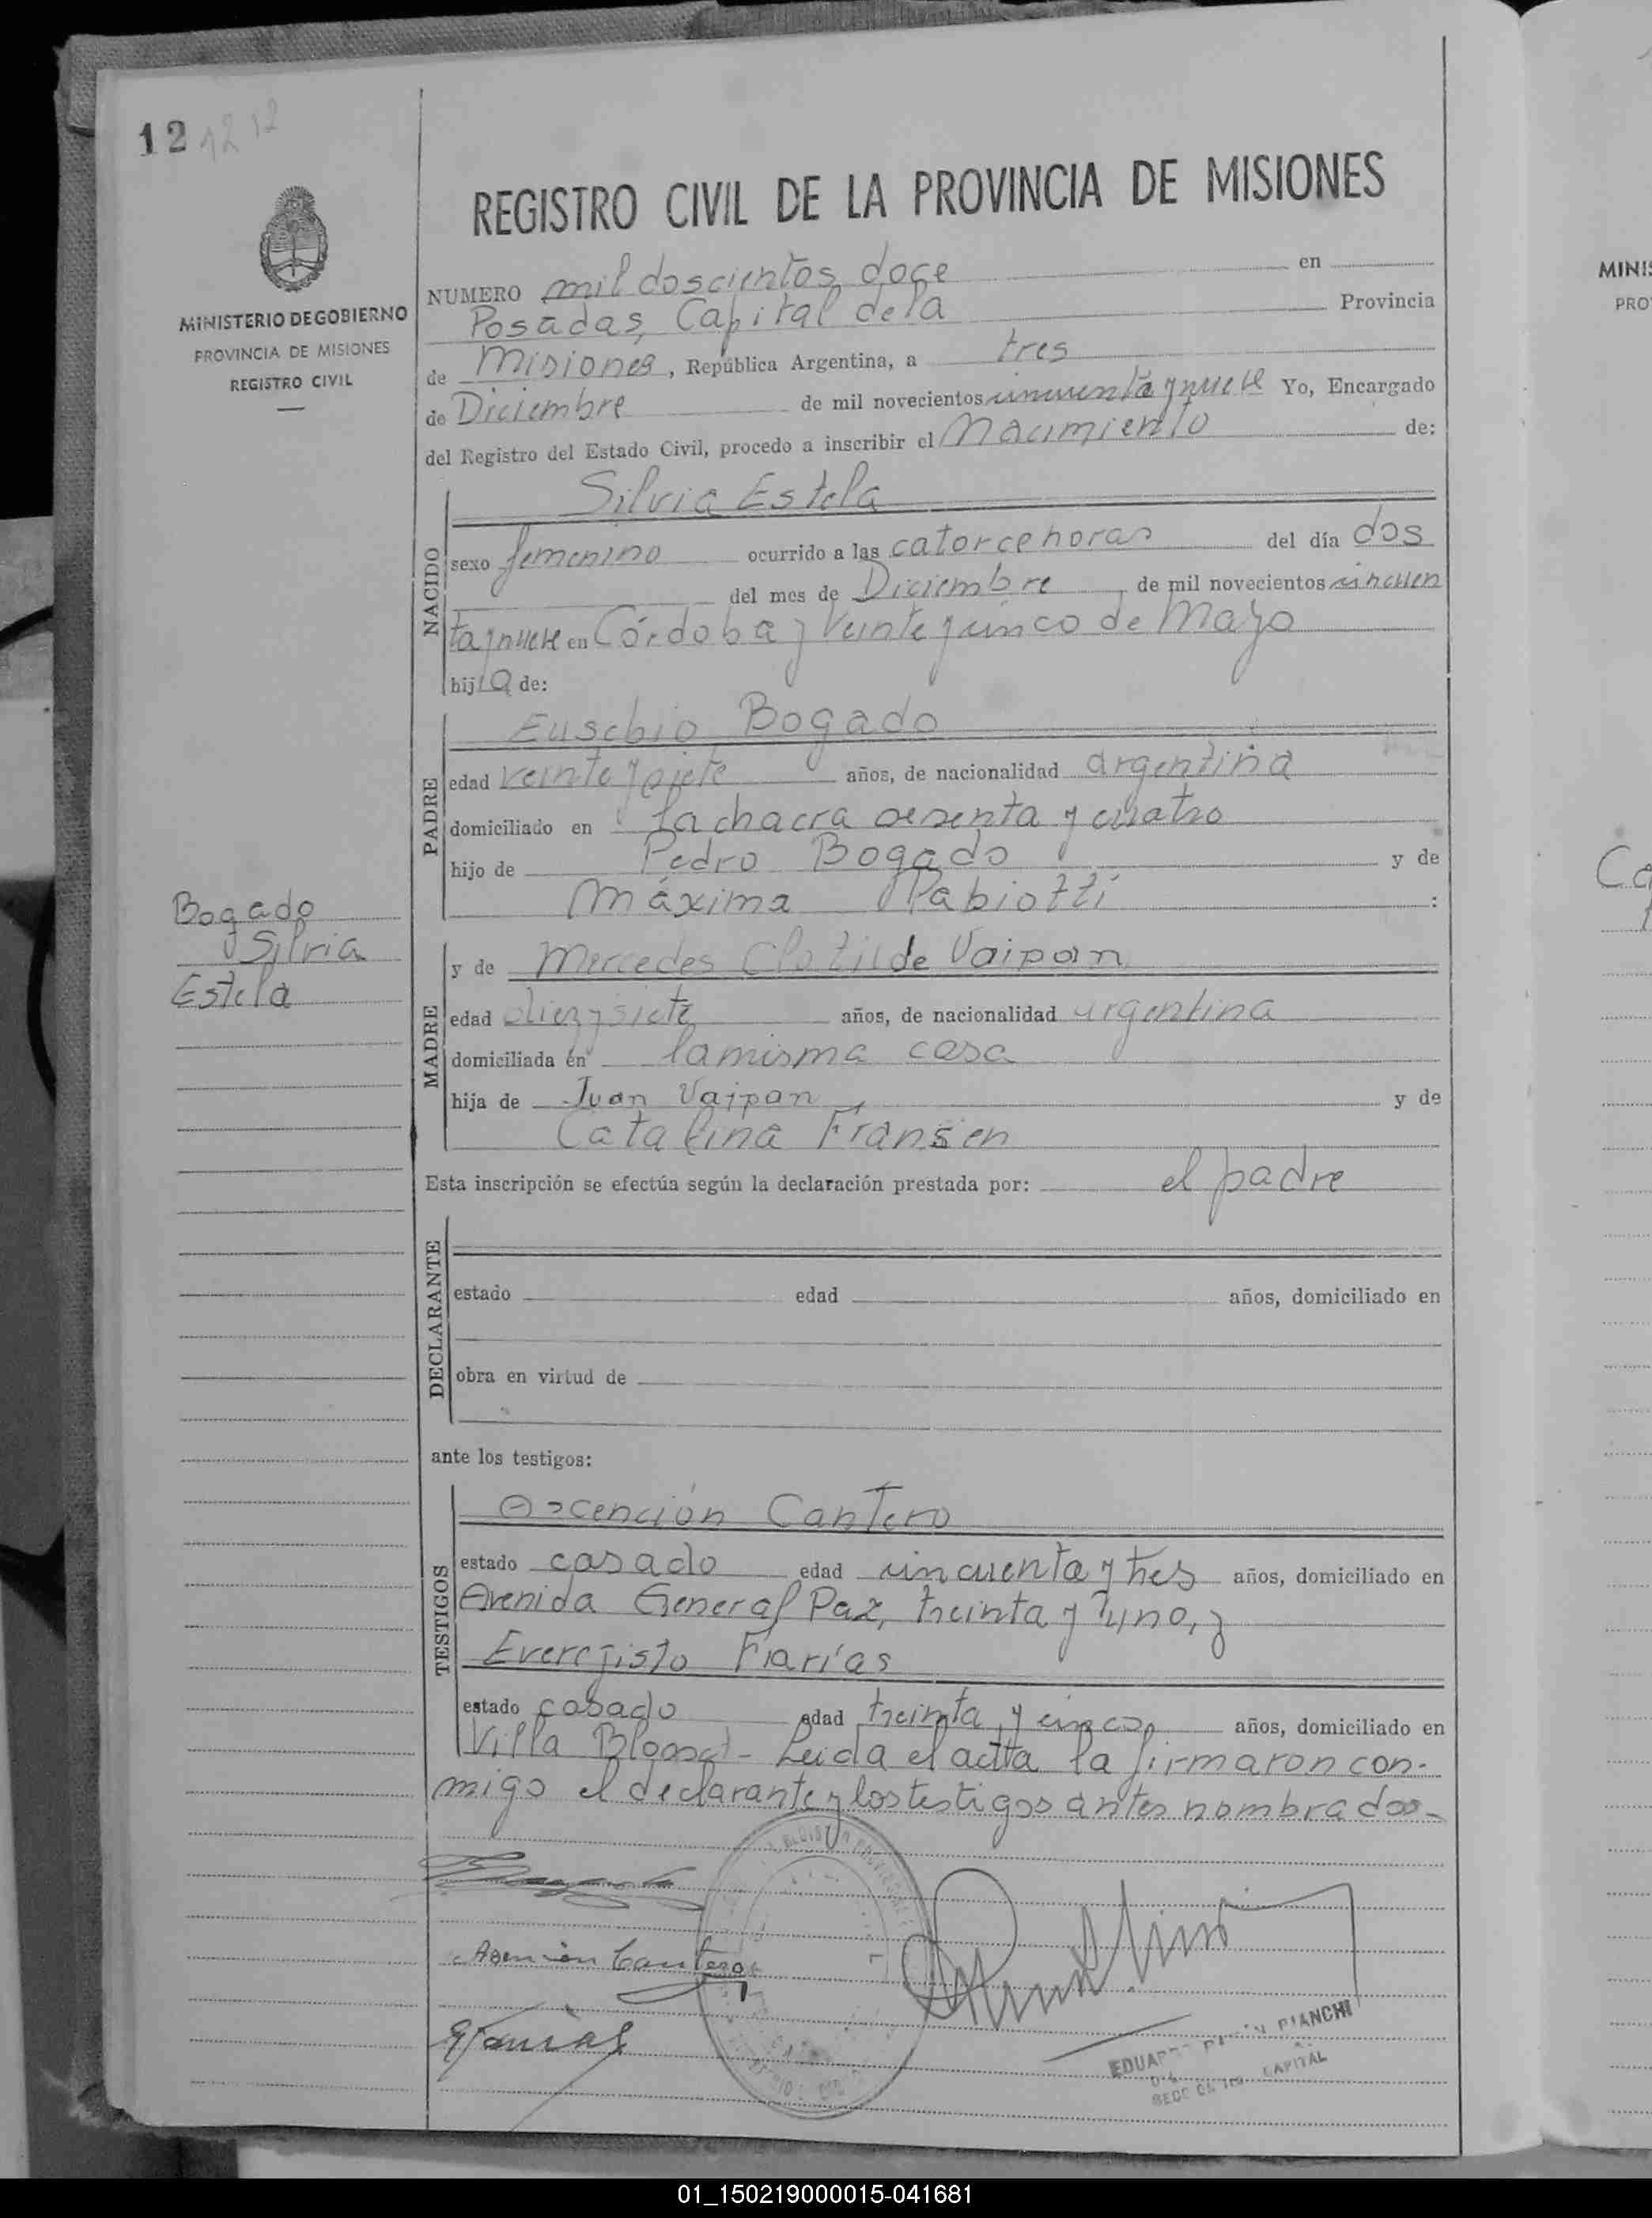 12 1212
REGISTRO CIVIL DE LA PROVINCIA DE MISIONES
MINISTERIO DE GOBIERNO
PROVINCIA DE MISIONES
REGISTRO CIVIL
NUMERO mil doscientos doce en
Posadas, Capital de la Provincia
de Misiones, República Argentina, a tres
de Diciembre de mil novecientos cincuenta y nueve Yo, Encargado
del Registro del Estado Civil, procedo a inscribir el Nacimiento de:
NACIDO
Silvia Estela
sexo femenino ocurrido a las catorce horas del día dos
del mes de Diciembre de mil novecientos cincuen
ta y nueve en Córdoba y Veinte y cinco de Mayo
hija de:
PADRE
Eusebio Bogado
edad veinte y siete años, de nacionalidad argentina
domiciliado en La chacra sesenta y cuatro
hijo de Pedro Bogado y de
Máxima Pabiotti :
Bogado
Silvia
Estela
MADRE
y de Mercedes Clotilde Vaipan
edad diez y siete años, de nacionalidad argentina
domiciliada en la misma casa
hija de Juan Vaipan y de
Catalina Fransen
Esta inscripción se efectúa según la declaración prestada por: el padre
DECLARANTE
estado edad años, domiciliado en
obra en virtud de
ante los testigos:
TESTIGOS
Ascención Cantero
estado casado edad cincuenta y tres años, domiciliado en
Avenida General Paz, treinta y uno, y
Everegisto Farías
estado casado edad treinta y cinco años, domiciliado en
Villa Blosset - Leida el acta la firmaron con-
migo el declarante y los testigos antes nombrados-
Asención Cantero
EFarias
BIANCHI
CAPITAL
MINIS
PRO
01_150219000015-041681